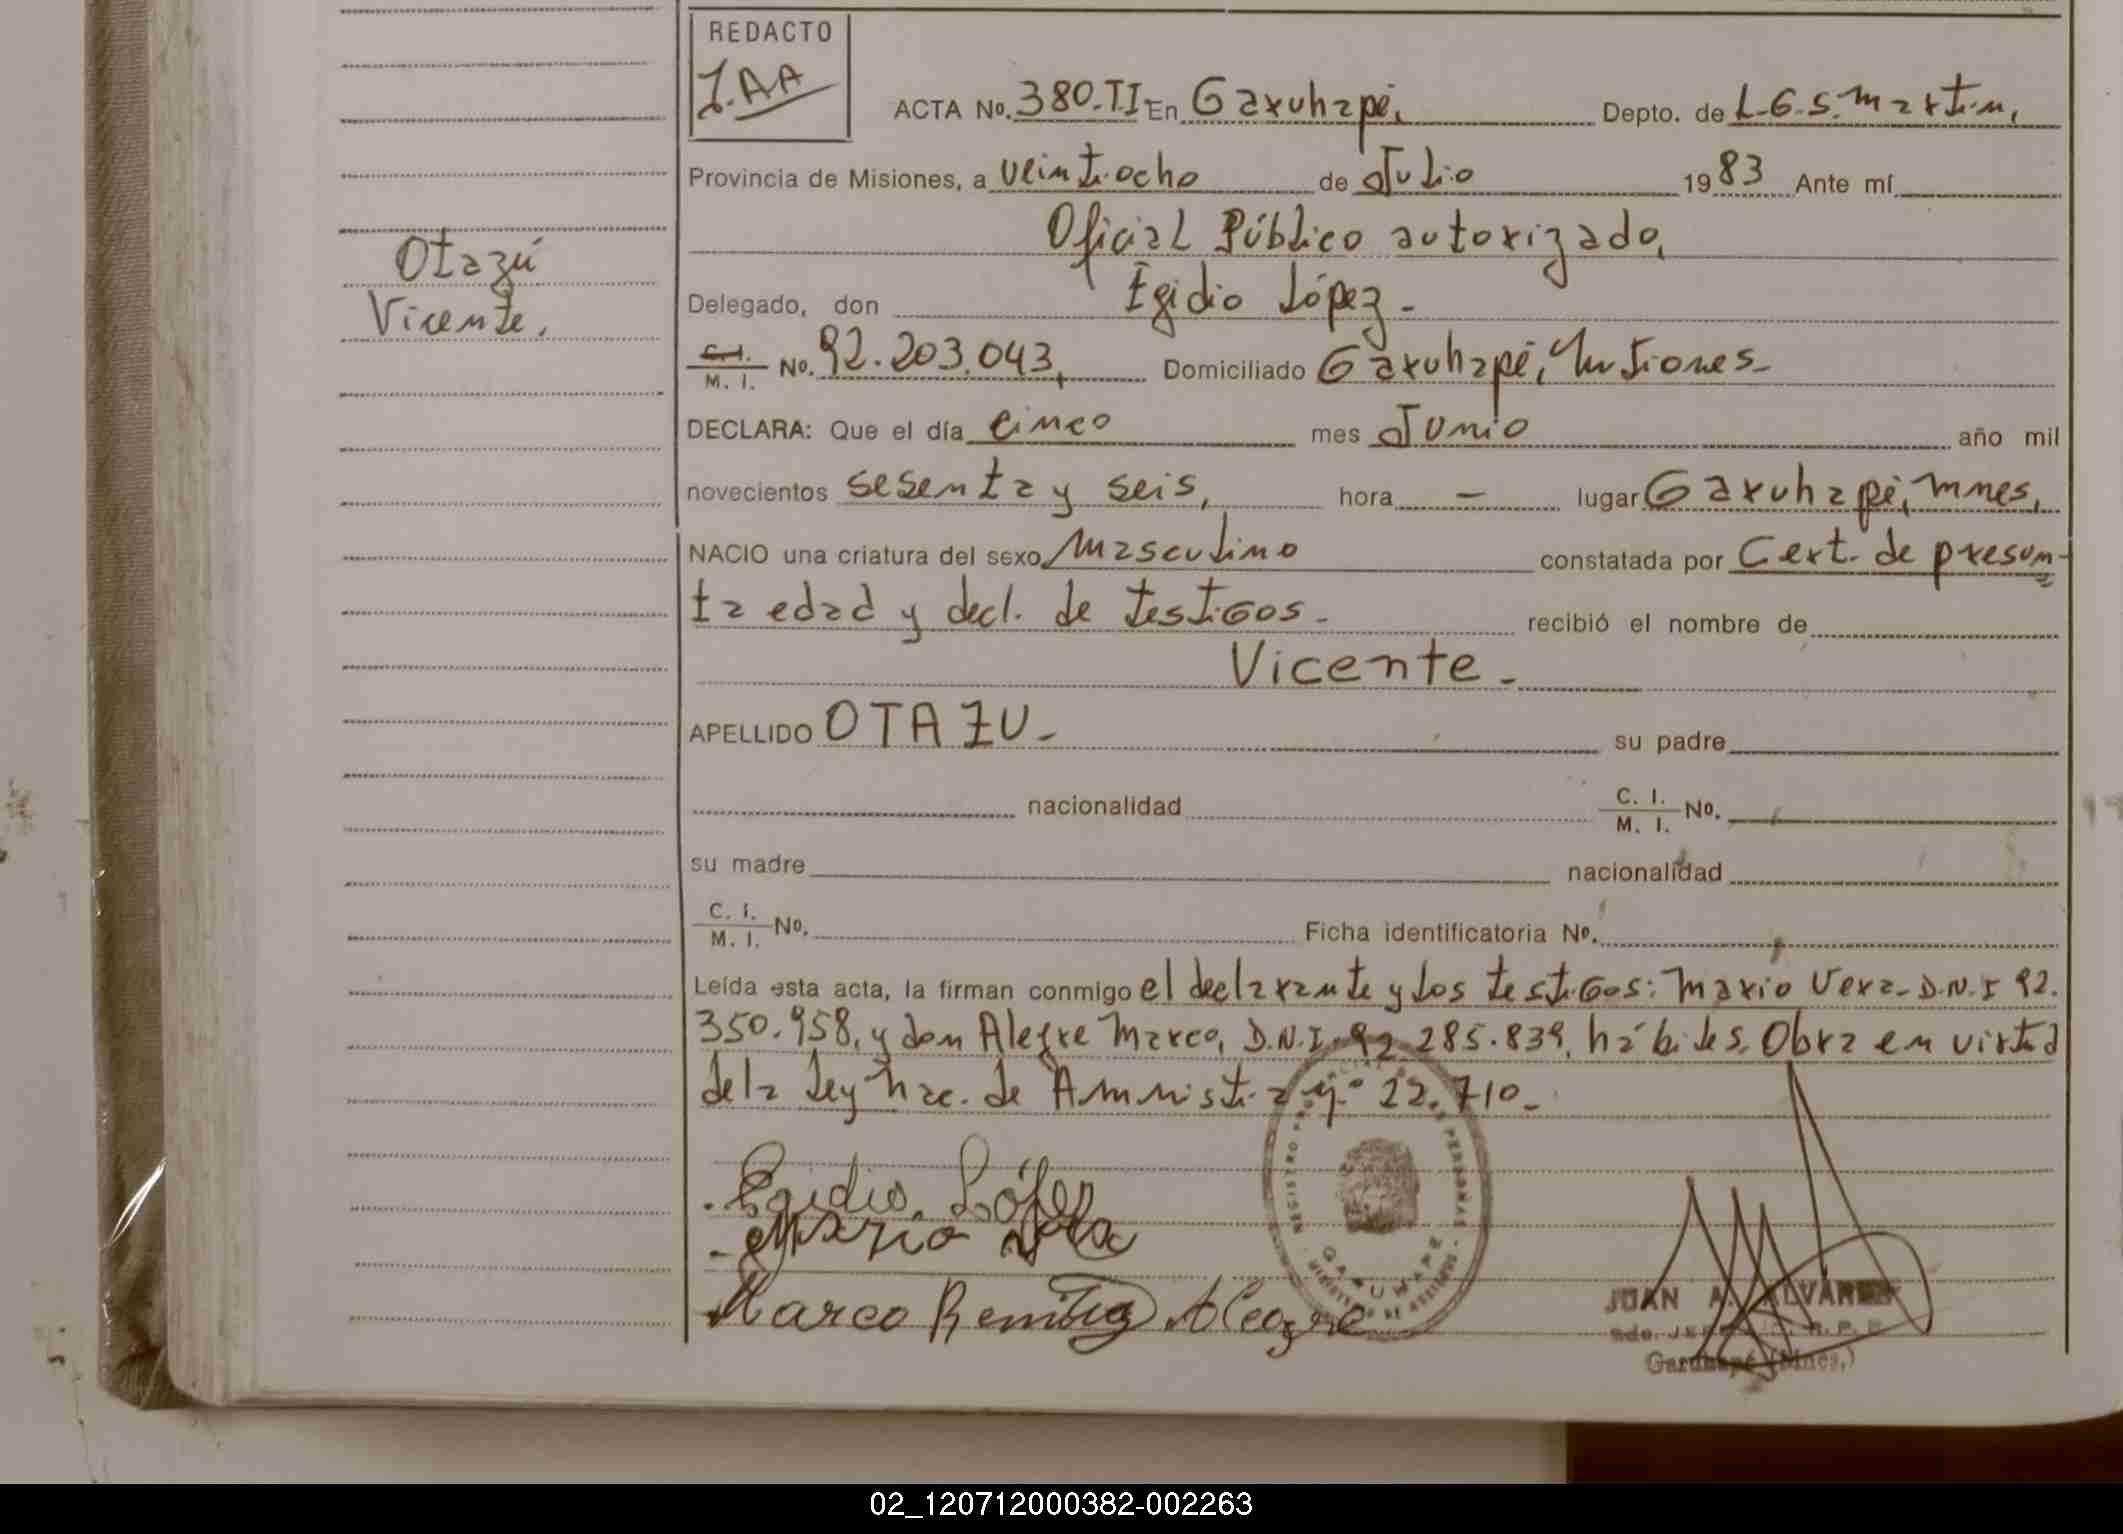 REDACTO
J.AA
ACTA No. 380.TI En Garuhapé, Depto. de L.G.S.Martin,
Provincia de Misiones, a veintiocho de Julio 1983 Ante mí
Oficial Público autorizado,
Otazú
Vicente,
Delegado, don Egidio López-
C.I. M.I. No. 92.203.043, Domiciliado Garuhapé, Misiones-
DECLARA: Que el día cinco mes Junio año mil
novecientos sesenta y seis, hora - lugar Garuhapé, Mnes,
NACIO una criatura del sexo Masculino constatada por Cert. de presun-
ta edad y decl. de testigos- recibió el nombre de
Vicente-
APELLIDO OTAZU- su padre
nacionalidad C. I. M. I. No.
su madre nacionalidad
C. I. M. I. No. Ficha identificatoria No.
Leída esta acta, la firman conmigo el declarante y los testigos: Mario Vera- D.N.I 92.
350.958, y don Alegre Marco, D.N.I. 92.285.839, hábiles. Obra en virtud
de la Ley Nac. de Amnistia nº 22.710-
Egidio López
Mario Vera
Marco Remitig Alegre
REGISTRO PROVINCIAL DE LAS PERSONAS
GARUHAPE
MINISTERIO DE
JUAN A. ALVAREZ
Garuhapé (Mnes.)
02_120712000382-002263